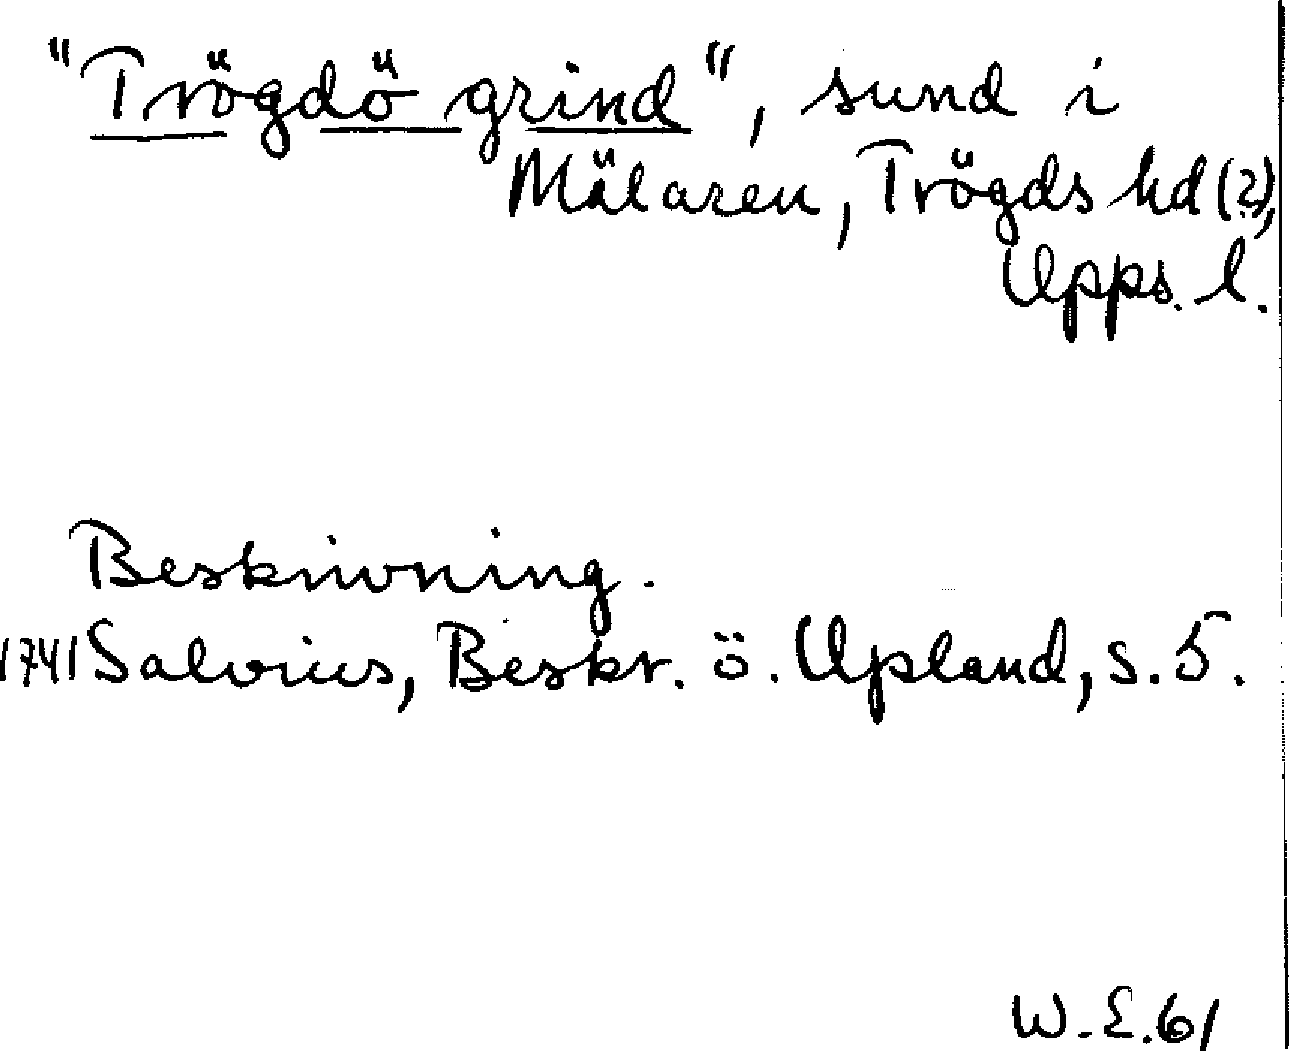 "Trögdö grind", sund i
Mälaren, Trögds hd (?),
Upps. l.
Beskrivning.
1741 Salvius, Beskr. ö. Upland, s. 5.
W. E. 61